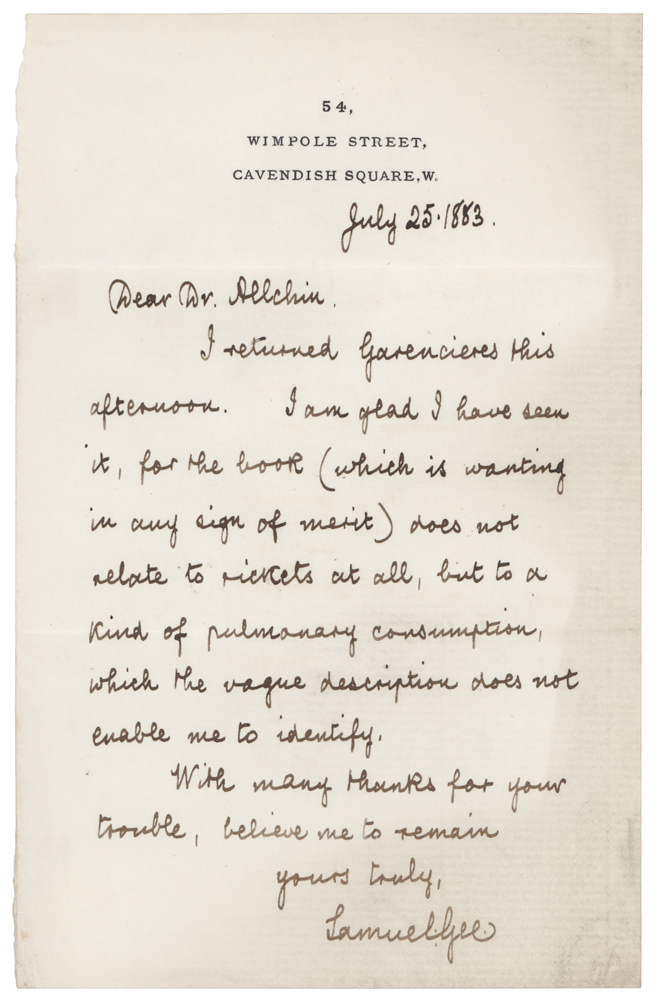 54,
WIMPOLE STREET,
CAVENDISH SQUARE, W.
July 25. 1883.
Dear Dr. Allchin.
I returned Garencieres this
afternoon. I am glad I have seen
it, for the book (which is wanting
in any sign of merit) does not
relate to rickets at all, but to a
kind of pulmonary consumption,
which the vague description does not
enable me to identify.
With many thanks for your
trouble, believe me to remain
yours truly,
Samuel Gee